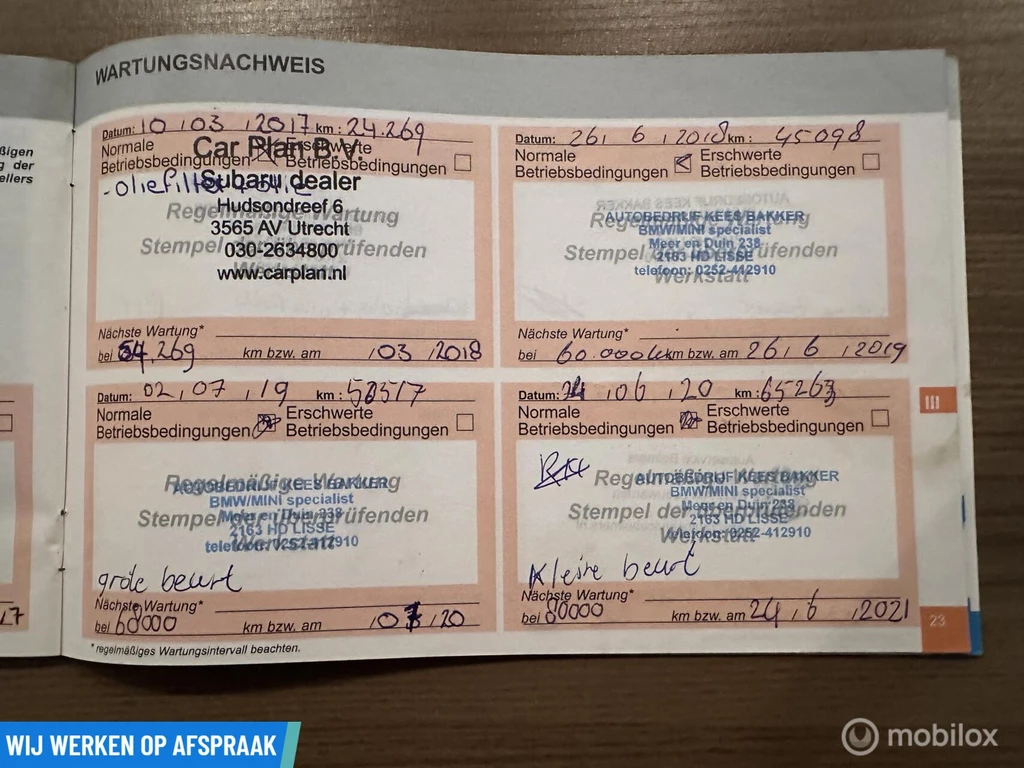 ßigen
g der
ellers
WARTUNGSNACHWEIS
Datum: 10 / 03 / 2017 km: 24.269
Normale Betriebsbedingungen
Erschwerte Betriebsbedingungen
- Oliefilter + olie
Car Plan B.V.
Subaru dealer
Hudsondreef 6
3565 AV Utrecht
030-2634800
www.carplan.nl
Regelmäßige Wartung
Stempel der überprüfenden
Werkstatt
Nächste Wartung*
bei 54.269 km bzw. am / 03 / 2018
Datum: 26 / 6 / 2018 km: 45098
Normale Betriebsbedingungen
Erschwerte Betriebsbedingungen
Regelmäßige Wartung
Stempel der überprüfenden
Werkstatt
AUTOBEDRIJF KEES BAKKER
BMW/MINI specialist
Meer en Duin 238
2163 HD LISSE
telefoon: 0252-412910
Nächste Wartung*
bei 60.000 km bzw. am 26 / 6 / 2019
Datum: 02 / 07 / 19 km: 58517
Normale Betriebsbedingungen
Erschwerte Betriebsbedingungen
Regelmäßige Wartung
Stempel der überprüfenden
Werkstatt
AUTOBEDRIJF KEES BAKKER
BMW/MINI specialist
Meer en Duin 238
2163 HD LISSE
telefoon: 0252-412910
grote beurt
Nächste Wartung*
bei 68000 km bzw. am / 07 / 20
Datum: 24 / 06 / 20 km: 65263
Normale Betriebsbedingungen
Erschwerte Betriebsbedingungen
Regelmäßige Wartung
Stempel der überprüfenden
Werkstatt
AUTOBEDRIJF KEES BAKKER
BMW/MINI specialist
Meer en Duin 238
2163 HD LISSE
telefoon: 0252-412910
Kleine beurt
Nächste Wartung*
bei 80000 km bzw. am 24 / 6 / 2021
* regelmäßiges Wartungsintervall beachten.
III
23
17
WIJ WERKEN OP AFSPRAAK
mobilox